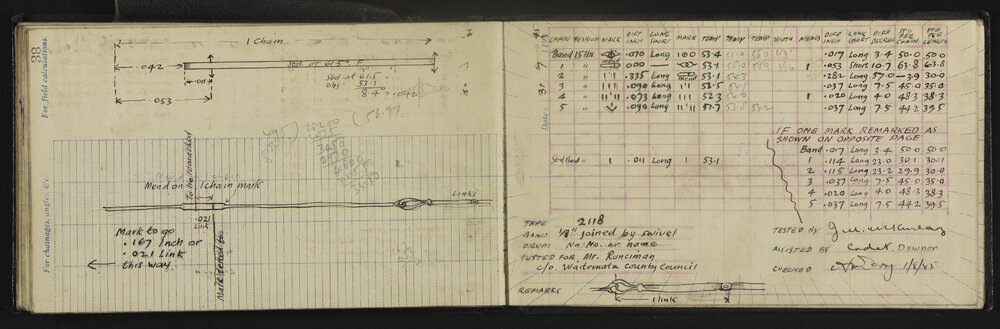 38
For field calculations.
For chainages, angles, etc.
1 Chain
.042
Std at 61.5° F.
.011
Std at 61.5
obs 57.1
8.4 = .042
.053
To be remarked
Mend on 1 Chain mark
Links
.021
Link
Mark to go
.167 Inch or
.021 Link
this way.
Date 31 7 45
CHAIN TENSION MARK DIFF INCH LONG SHORT MARK TEMP TEMP TEMP WIDTH MENDS DIFF INCH LONG SHORT DIFF DEGREES PTS PER CHAIN PTS PER LENGTH
Band 15 lbs .070 Long 100 53.4 1/8" .017 Long 3.4 50.0 50.0
1 " .000 — 53.1 1 .053 Short 10.7 63.8 63.8
2 " 1'1 .335 Long 53.1 .282 Long 57.0 —3.9 30.0
3 " 111 .090 Long 1'1 52.5 .037 Long 7.5 45.0 35.0
4 " 11'11 .073 Long 111 52.3 1 .020 Long 4.0 48.3 38.3
5 " .090 Long 11'11 .037 Long 7.5 44.2 39.5
IF ONE MARK REMARKED AS
SHOWN ON OPPOSITE PAGE
Band .017 Long 3.4 50.0 50.0
Std Band " 1 .011 Long 1 53.1 1 .114 Long 23.0 30.1 30.1
2 .115 Long 23.2 29.9 30.0
3 .037 Long 7.5 45.0 35.0
4 .020 Long 4.0 48.3 38.3
5 .037 Long 7.5 44.2 39.5
TAPE 2118
BAND 1/8" joined by swivel
DRUM No No. or name
TESTED FOR Mr. Runciman
c/o. Waitemata County Council
TESTED BY
ASSISTED BY Cadet Downer
CHECKED 1/8/45
REMARKS
1 link